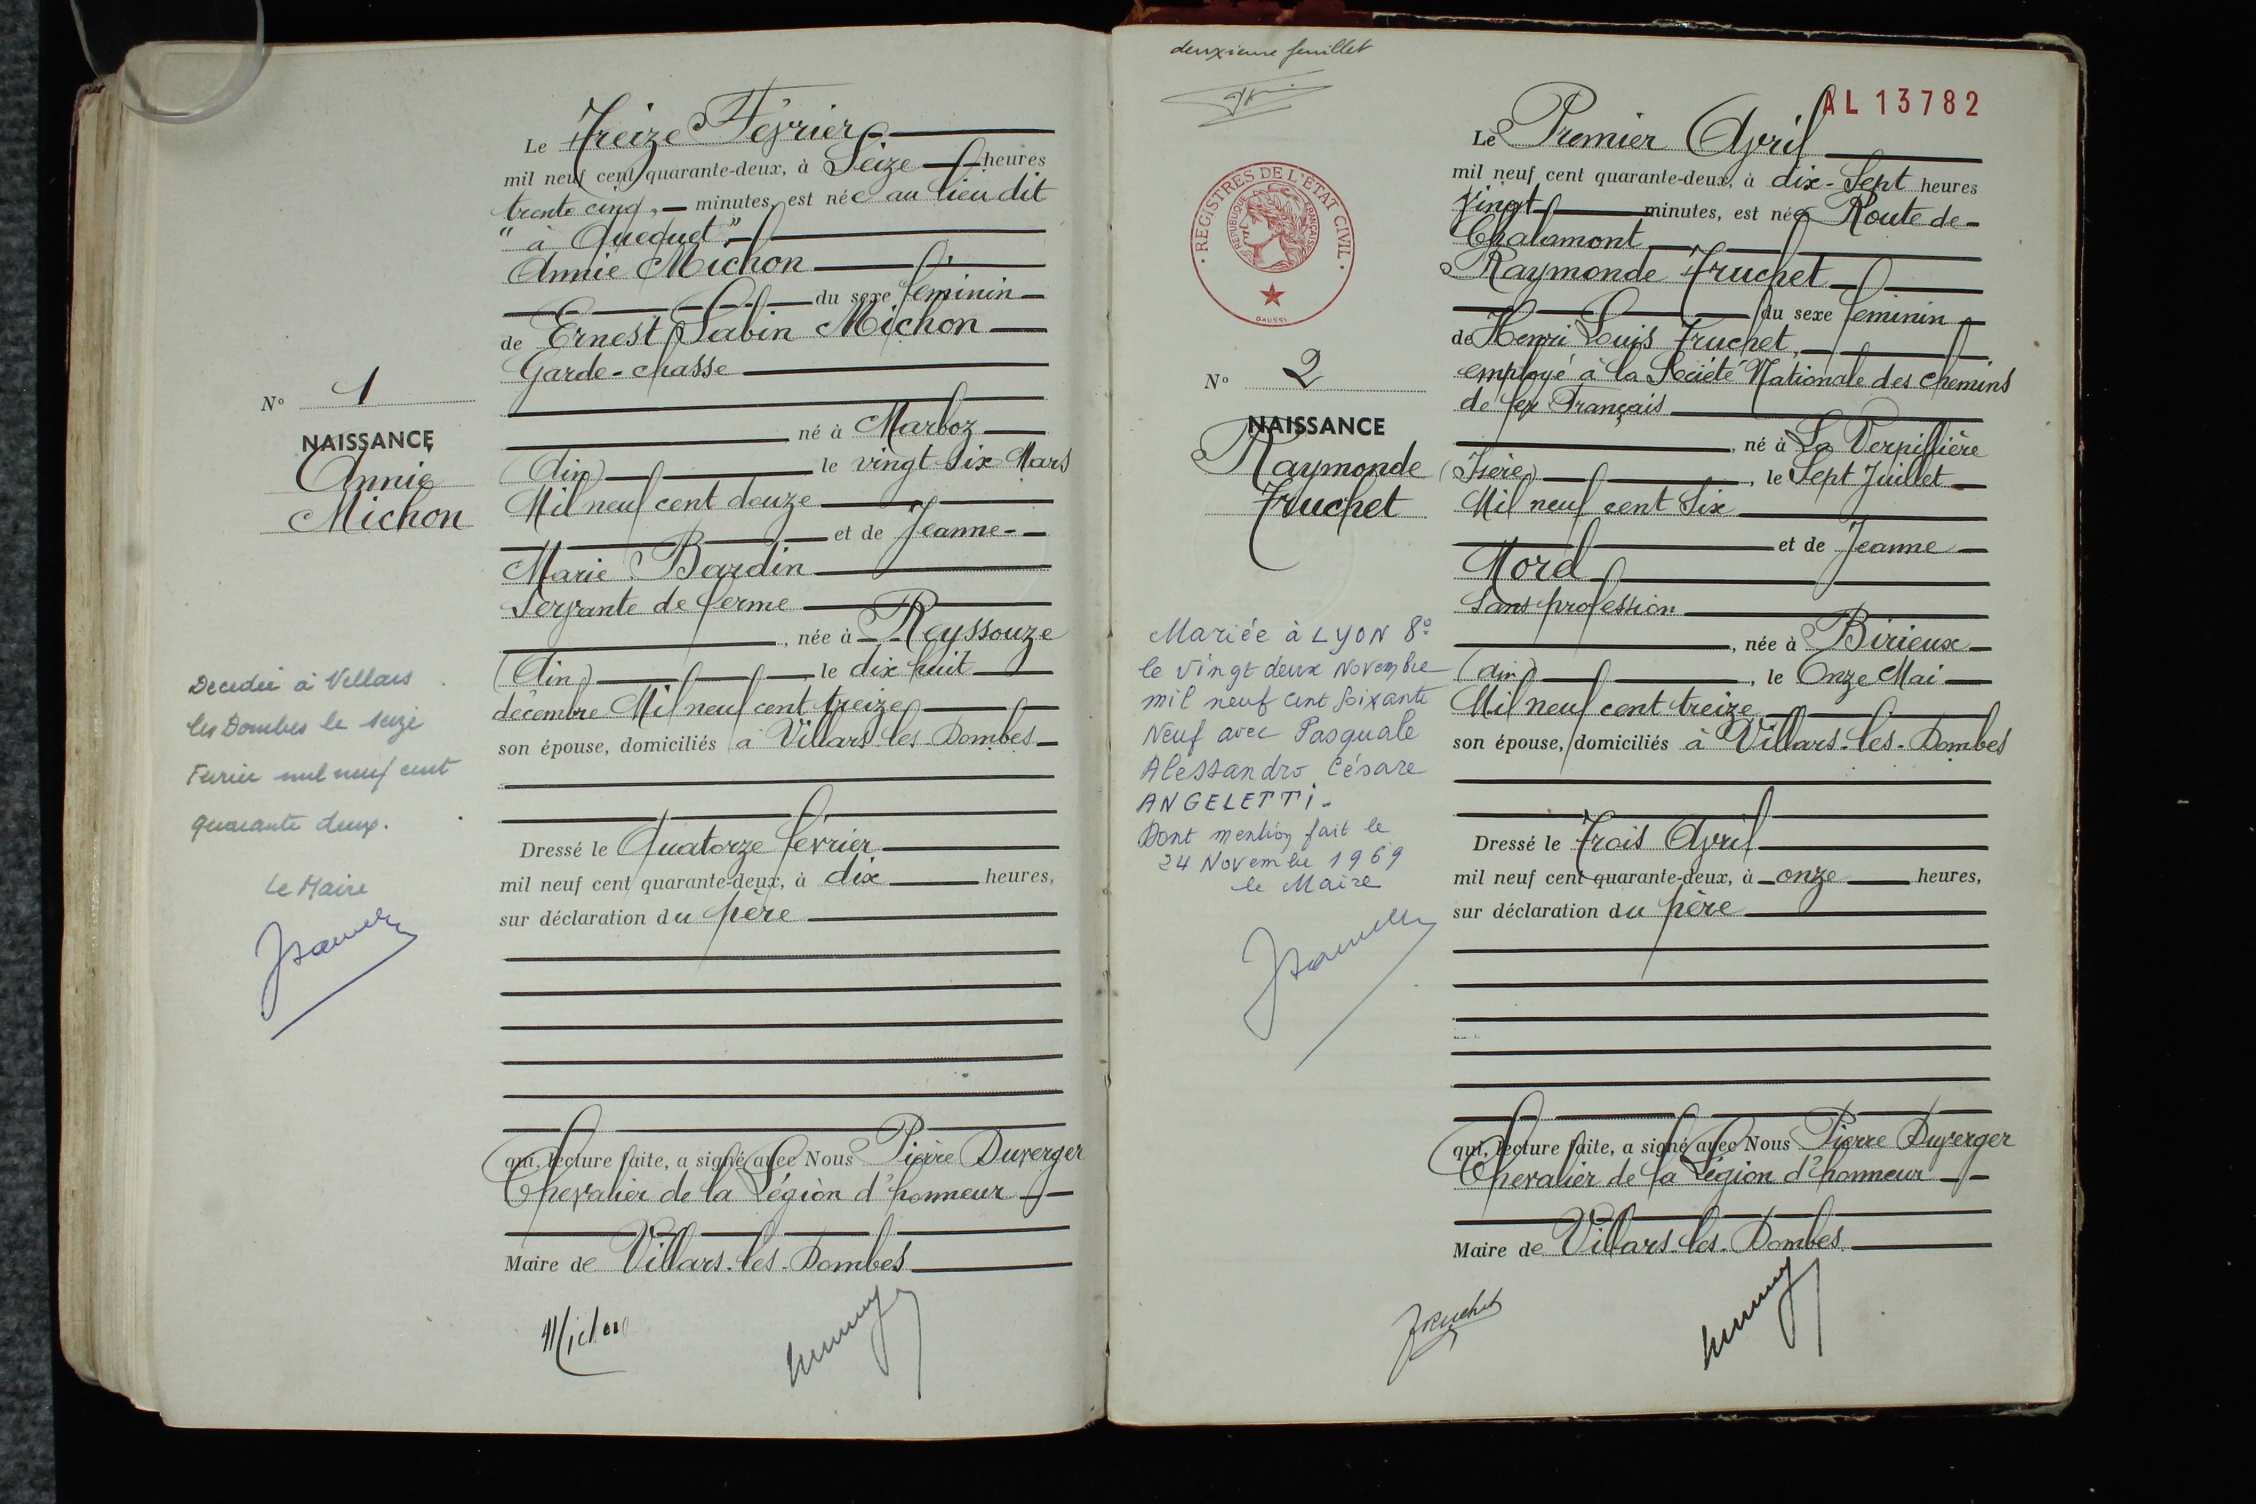 Le Treize Février
mil neuf cent quarante-deux, à Seize heures
trente cinq, minutes, est née au lieu dit
" à Quequet "
Annie Michon
du sexe féminin
de Ernest Sabin Michon
Garde-chasse
né à Marboz
(Ain) le vingt Six Mars
Mil neuf cent douze
et de Jeanne
Marie Bardin
Servante de ferme
, née à Reyssouze
(Ain) , le dix huit
décembre Mil neuf cent treize
son épouse, domiciliés à Villars-les-Dombes
Dressé le Quatorze février
mil neuf cent quarante-deux, à dix heures,
sur déclaration du père
qui, lecture faite, a signé avec Nous Pierre Duverger
Chevalier de la Légion d'honneur
Maire de Villars-les-Dombes
Michon
N° 1
NAISSANCE
Annie
Michon
Decedée à Villars
les Dombes le seize
Fevrier mil neuf cent
quarante deux.
Le Maire
deuxieme feuillet
AL 13782
REGISTRES DE L'ÉTAT CIVIL
RÉPUBLIQUE FRANÇAISE
Le Premier Avril
mil neuf cent quarante-deux, à dix-Sept heures
vingt minutes, est née Route de
Chalamont
Raymonde Truchet
du sexe féminin
de Henri Louis Truchet,
employé à la Société Nationale des Chemins
de fer Français
, né à La Verpillière
(Isère) , le Sept Juillet
Mil neuf cent Six
et de Jeanne
Morel
Sans profession
, née à Birieux
(Ain) , le Onze Mai
Mil neuf cent treize
son épouse, domiciliés à Villars-les-Dombes
Dressé le Trois Avril
mil neuf cent quarante-deux, à onze heures,
sur déclaration du père
qui, lecture faite, a signé avec Nous Pierre Duverger
Chevalier de la Légion d'honneur
Maire de Villars-les-Dombes
Truchet
N° 2
NAISSANCE
Raymonde
Truchet
Mariée à LYON 8e
le Vingt deux Novembre
mil neuf cent Soixante
Neuf avec Pasquale
Alessandro Césare
ANGELETTI.
Dont mention fait le
24 Novembre 1969
le Maire